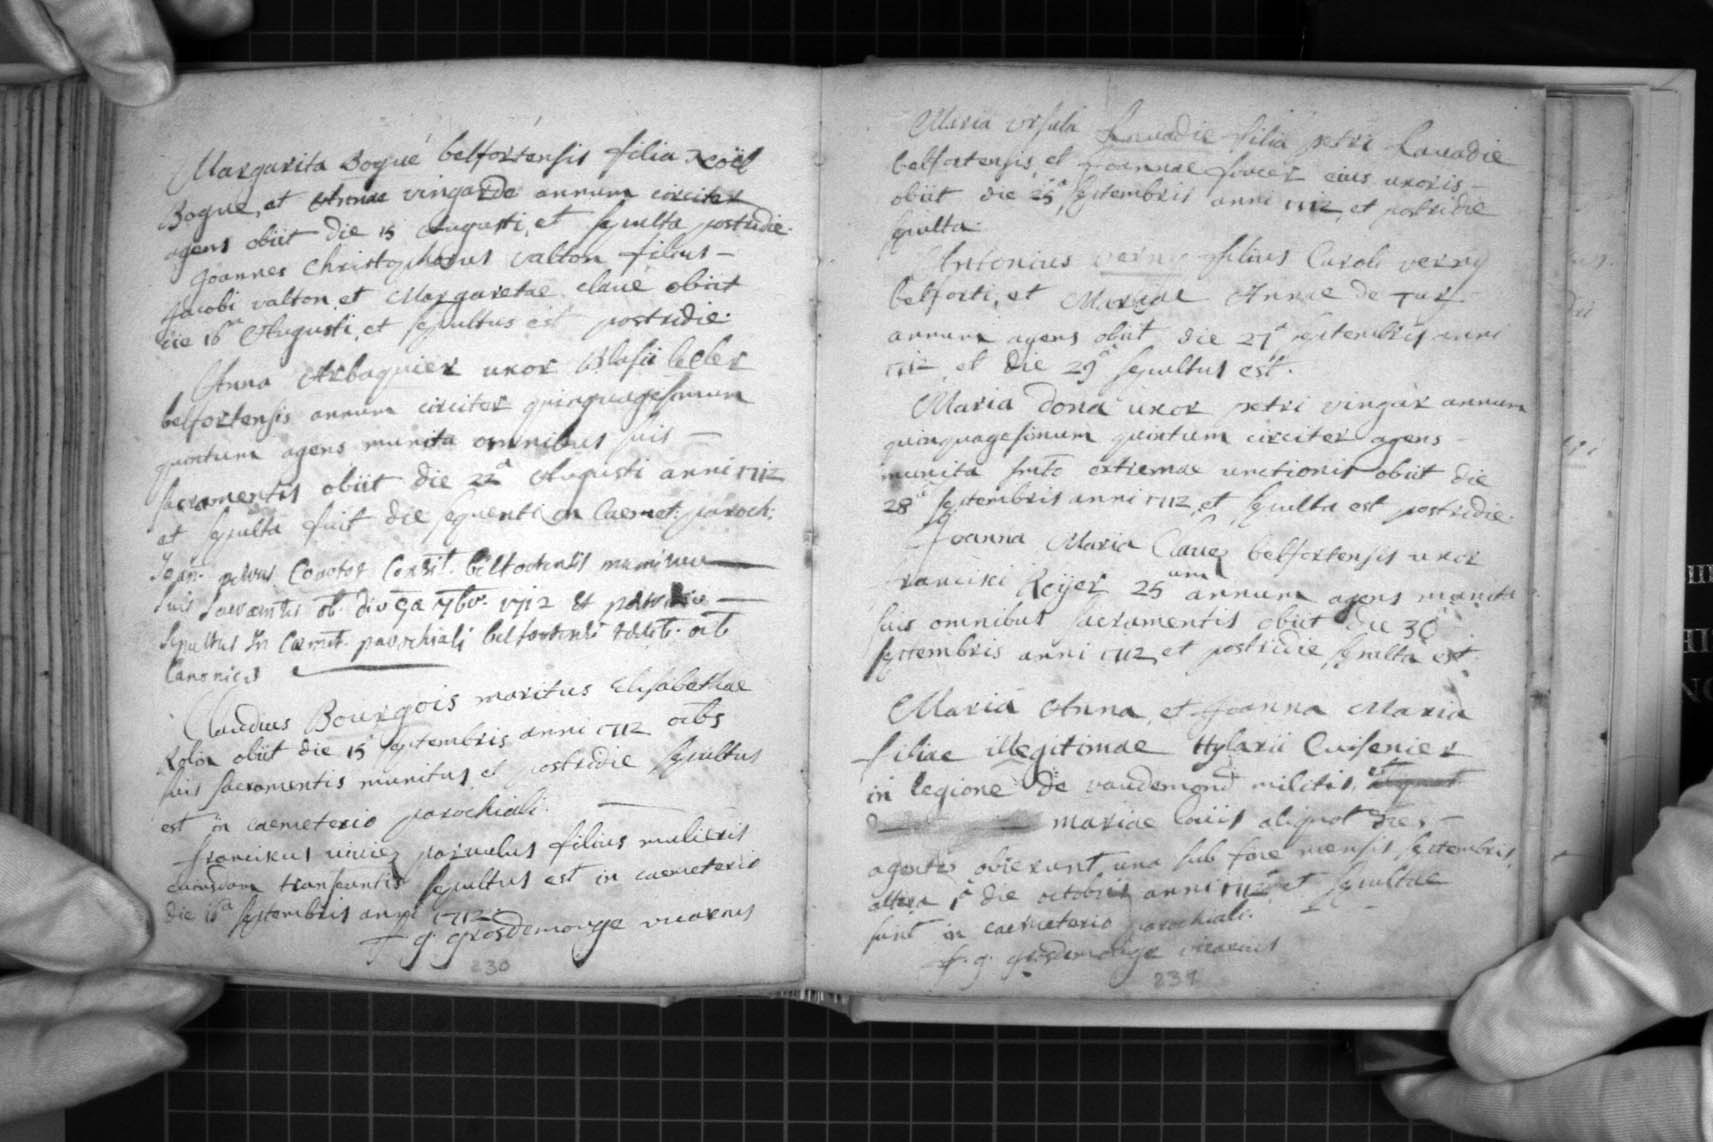 Margarita Bogué belfortensis filia Noël
Bogue, et Annae vingarde annum circiter
agens obiit die 15 Augusti, et sepulta postridie.
Joannes Christophorus valton filius —
Jacobi valton et Margaretae claué obiit
die 16a Augusti, et sepultus est postridie.
Anna Arbaquier uxor Blasii lecler
belfortensis annum circiter quinquagesimum
quintum agens munita omnibus suis —
sacramentis obiit die 22a Augusti anni 1712
et sepulta fuit die sequenti in Caemet: paroch:
belfortensis
suis Sacramtis ob. die 7br. 1712 et
Sepultus In Caemt. parochiali
Canonicis
Claudius Bourgois maritus Elisabethae
Rolin obiit die 15a septembris anni 1712 oibs
suis sacramentis munitus, et postridie sepultus
est in caemeterio parochiali.
franciscus viriez parvulus filius mulieris
cuiusdam transeuntis sepultus est in caemeterio
die 16a septembris anni 1712.
f. g. grosdemouge vicarius
230
Maria ursula Lavadie filia petri Lavadie
belfortensis, et Joannae eius uxoris
obiit die 25a septembris anni 1712, et postridie
sepulta.
Antonius verny filius Caroli verny
belforti, et Mariae Annae de
annum agens obiit die 27a septembris anni
1712, et die 29a sepultus est.
Maria Dona uxor petri vingar annum
quinquagesimum quintum circiter agens —
munita smto extremae unctionis obiit die
28a septembris anni 1712, et sepulta est postridie.
Joanna Maria Clauez belfortensis uxor
francisci Reijer 25um annum agens munita
suis omnibus sacramentis obiit die 30
septembris anni 1712, et postridie sepulta est.
Maria Anna, et Joanna Maria
filiae illegitimae Hylarii Cuisenier
in legione de vaudemond militis,
mariae aliquot dies —
agentes obierunt una sub fine mensis septembris,
altera 1a die octobris anni 1712, et sepultae
sunt in caemeterio parochiali.
f. g. grosdemouge vicarius
231